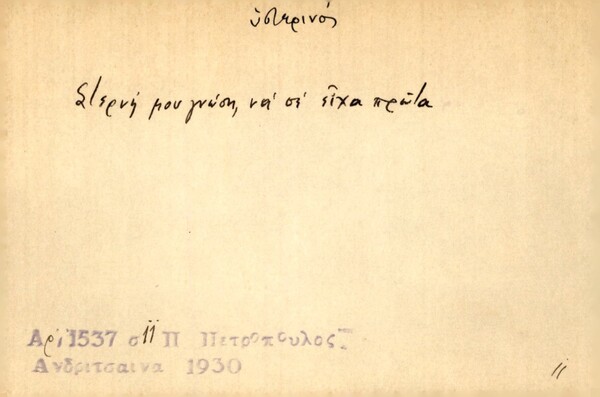 ὑστερινός
Στερνή μου γνώση, νά σέ εἶχα πρῶτα
Αρ. 1537 σ. 11 Π Πετροπουλος
Ανδριτσαινα 1930
11